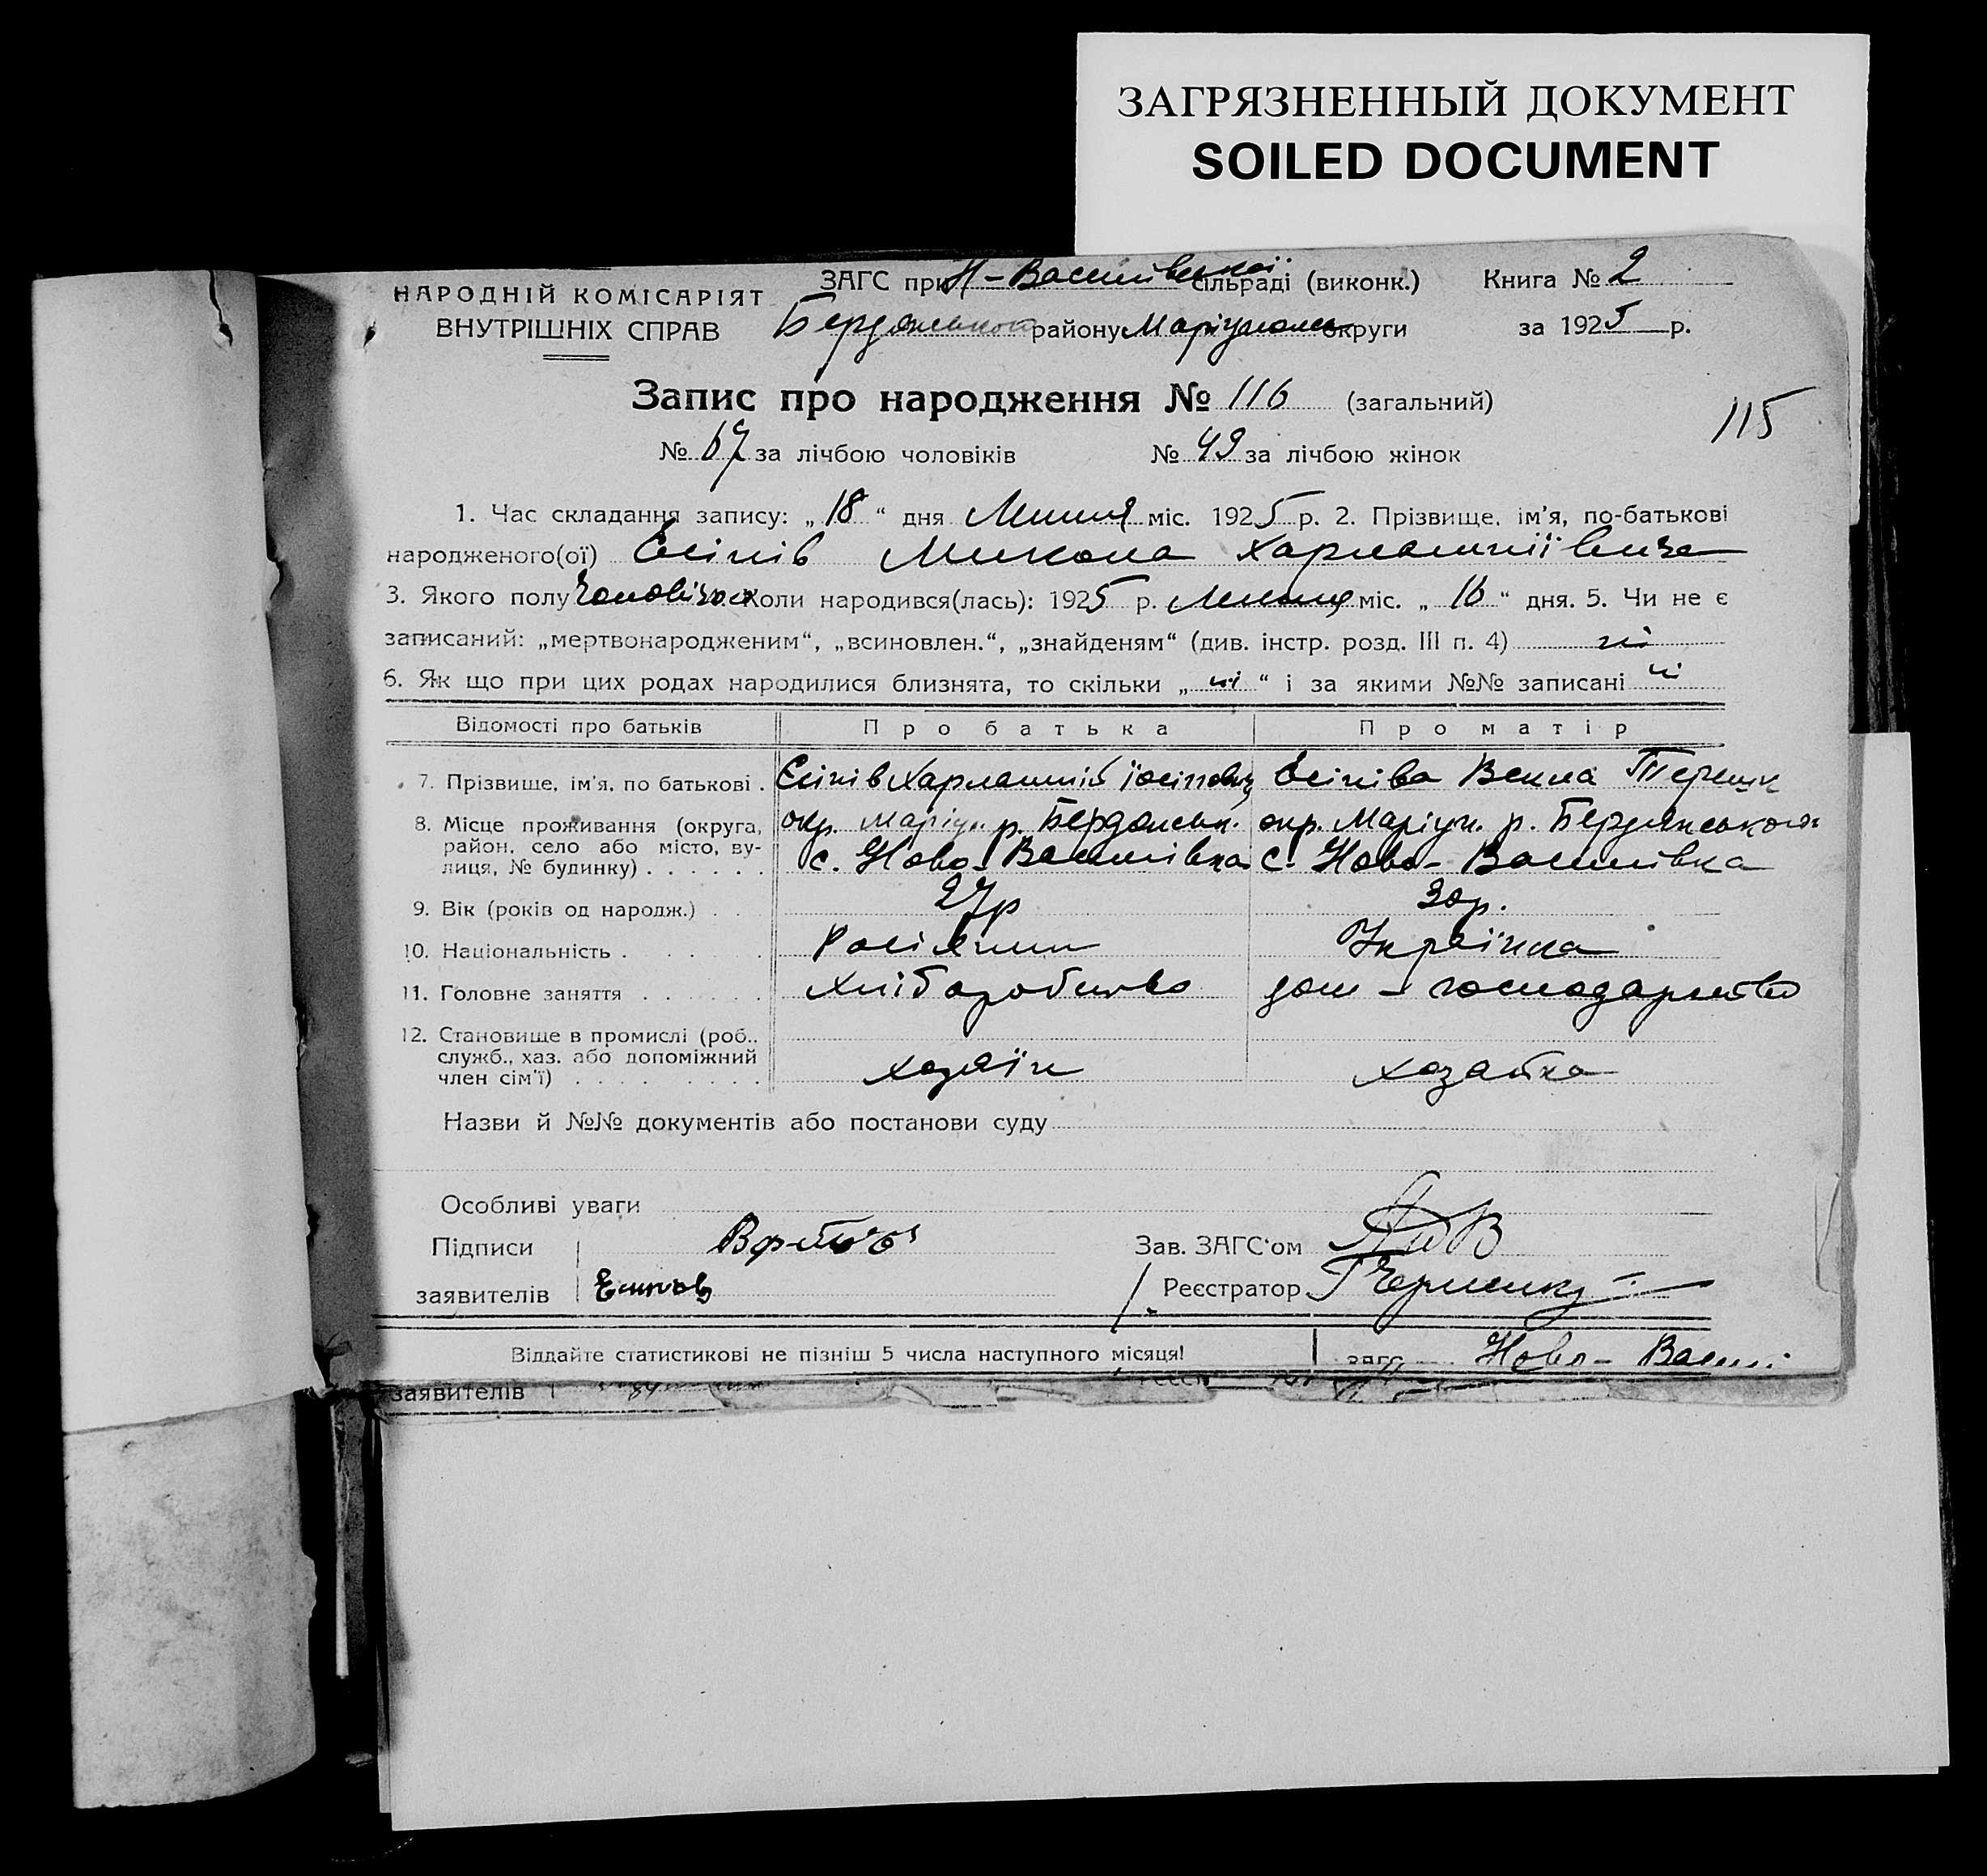 ЗАГРЯЗНЕННЫЙ ДОКУМЕНТ
SOILED DOCUMENT
НАРОДНІЙ КОМІСАРІЯТ
ВНУТРІШНІХ СПРАВ
ЗАГС при Н-Василівської сільраді (виконк.)
Бердянського району Маріупольс округи
Книга № 2
за 1925 р.
Запис про народження № 116 (загальний)
115
№ 67 за лічбою чоловіків № 49 за лічбою жінок
1. Час складання запису: „18“ дня Липня міс. 1925 р. 2. Прізвище, ім'я, по-батькові
народженого(ої) Єсіпів Микола Харлампіївича
3. Якого полу Чоловічого Коли народився(лась): 1925 р. Липня міс. „16“ дня. 5. Чи не є
записаний: „мертвонародженим“, „всиновлен.“, „знайденям“ (див. інстр. розд. III п. 4) ні
6. Як що при цих родах народилися близнята, то скільки „ні“ і за якими №№ записані ні
Відомості про батьків Про батька Про матір
7. Прізвище, ім'я, по батькові . Єсіпів Харлампій Іосіпович Єсіпіва Векла
8. Місце проживання (округа, окр. Маріуп. р. Бердянськ. окр. Маріуп. р. Бердянського
район, село або місто, ву- с. Ново-Василівка с. Ново-Василівка
лиця, № будинку) . . . . . .
9. Вік (років од народж.) . . 27р 30р.
10. Національність . . . . . Росіянин Українка
11. Головне заняття . . . . . . Хліборобство дом-господарство
12. Становище в промислі (роб.,
служб., хаз. або допоміжний хазяїн хазайка
член сім'ї) . . . . . . . . .
Назви й №№ документів або постанови суду
Особливі уваги
Підписи Зав. ЗАГС'ом
заявителів Есипов Реєстратор
Віддайте статистикові не пізніш 5 числа наступного місяця! ЗАГС Ново-Васил
заявителів